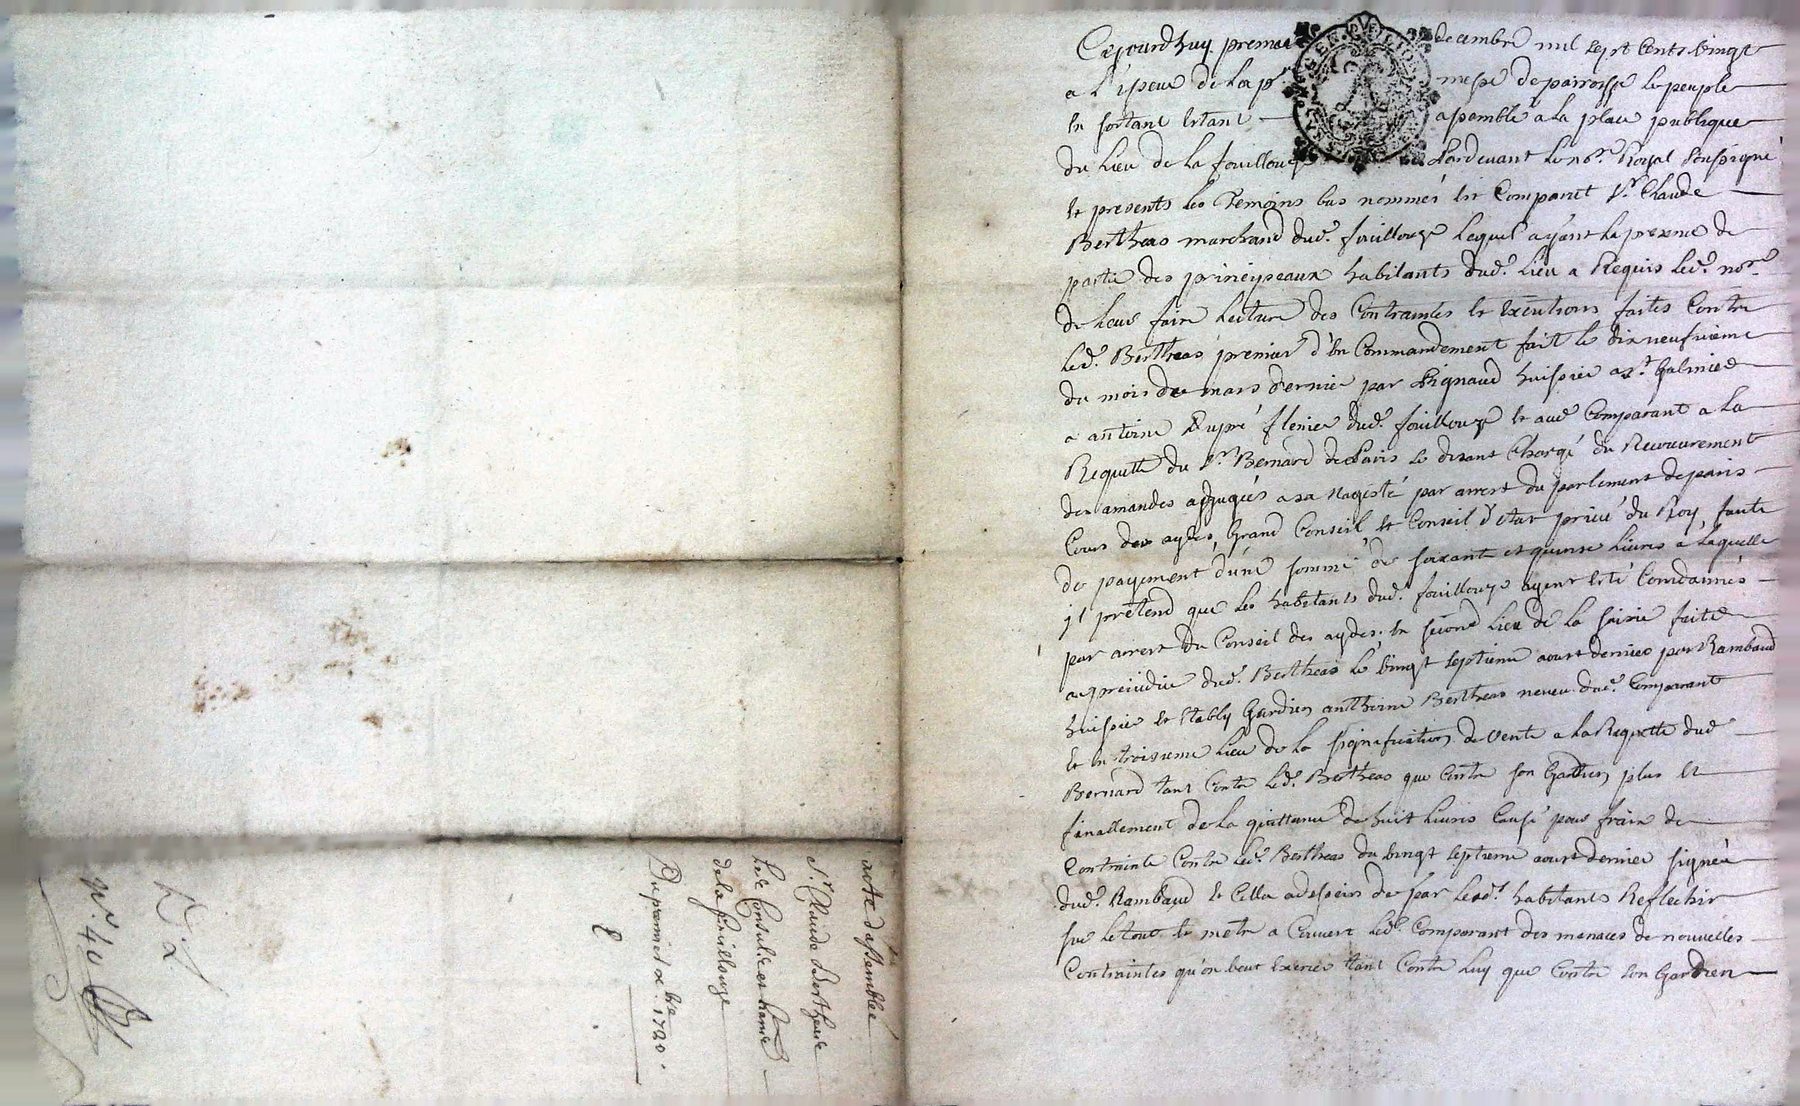 acte d'assemblée
Sr. Claude Bertheas
et Consul et hantz
de la fouillouze
Du premier Xbre 1720.
N°. 40
Cejourdhuy premier decembre mil sept cents vingt
a l'issue de la messe de parroisse le peuple
en sortant estant assemblé a la place publique
du lieu de la fouillouze Pardevant le nore. Royal soussigné
et presents les temoins bas nommés est comparut Sr. Claude
Bertheas marchand dud. fouillouze lequel ayant la presence de
partie des principeaux habitants dud. lieu a Requis led. nore.
de leur faire lecture des contraintes et executions faites contre
led. Bertheas premier d'un commandement fait le dix neufvieme
du mois de mars dernier par Pignaud huissier a St. Galmier
a antoine Dupré flenier dud. fouillouze et aud comparant a la
Requette du Sr. Bernard de Paris se disant chargé du Recouvrement
des amandes adjugées a sa Magesté par arrest du parlement de paris
Cours des aydes, Grand Conseil, et Conseil d'etat privé du Roy, faute
de payement d'une somme de soixante et quinse livres a laquelle
il prétend que les habitants dud. fouillouze ayent esté condamnés
par arrest du Conseil des aydes. en second lieu de la saisie faite
au prejudice dud. Bertheas le vingt septieme aoust dernier par Rambaud
huissier et etably Gardien anthoine Bertheas neveu dud. comparant
et en troisieme lieu de la signification de vente a la Requette dud
Bernard tant contre led. Bertheas que contre son Gardien plus et
finallement de la quittance de huit livres causé pour frais de
contrainte contre led. Bertheas du vingt septieme aoust dernier signée
dud. Rambaud et cella a dessein de par lesd. habitants Reflechir
sur le tout et metre a couvert led. comparant des menaces de nouvelles
contraintes qu'on veut exercer tant contre luy que contre son Gardien